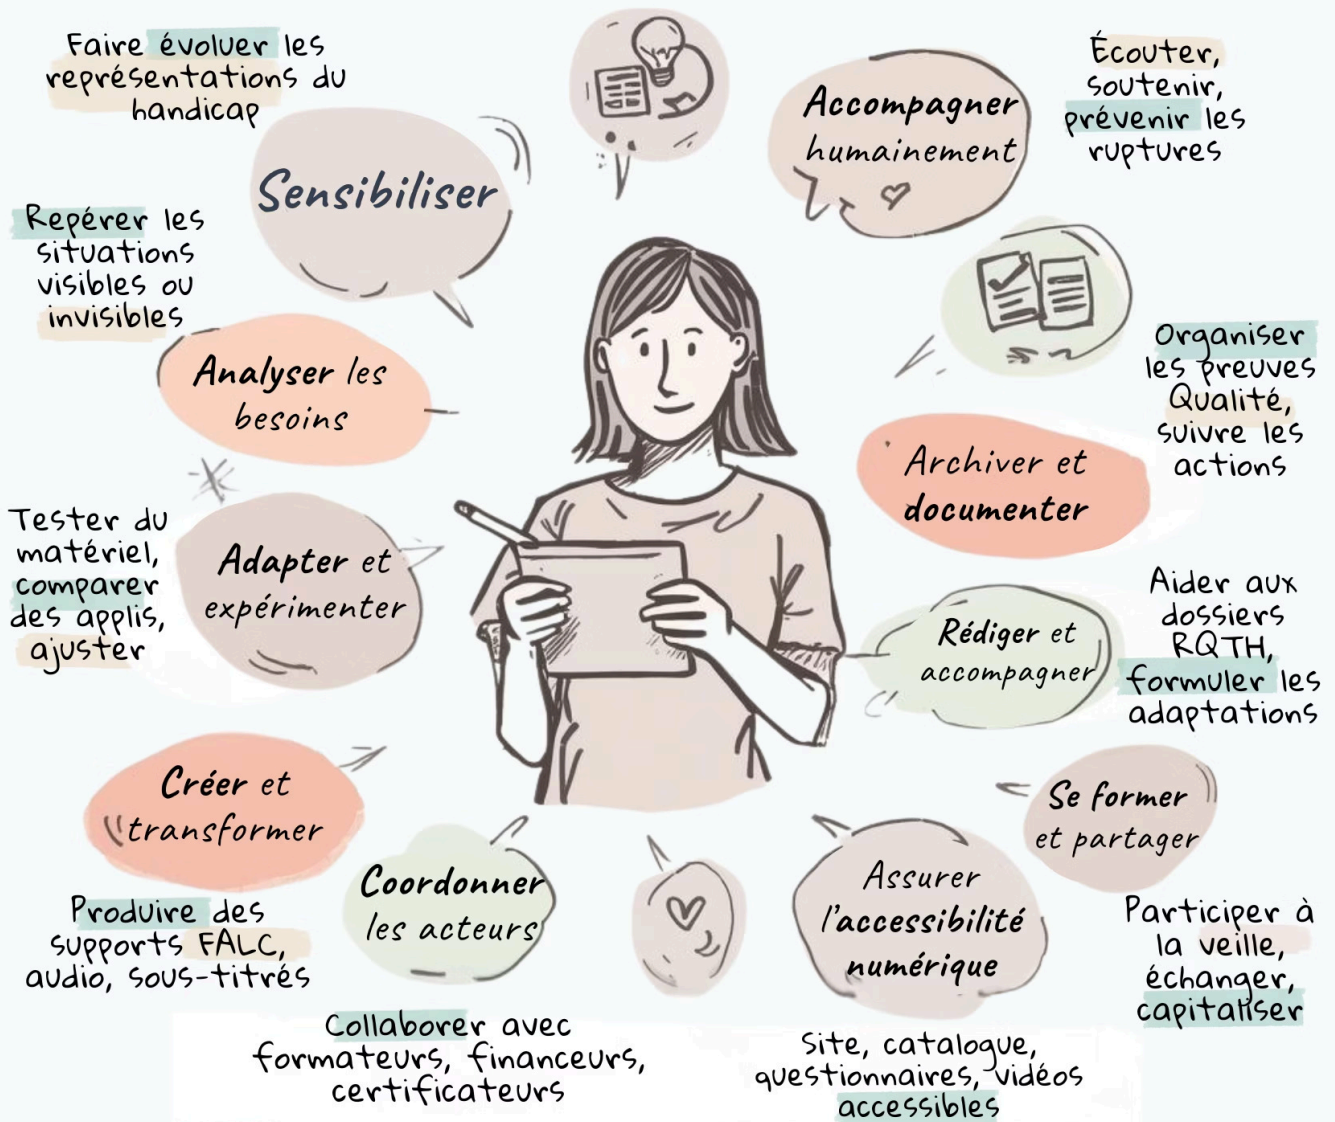 Faire évoluer les
représentations du
handicap
Sensibiliser
Repérer les
situations
visibles ou
invisibles
Analyser les
besoins
Tester du
matériel,
comparer
des applis,
ajuster
Adapter et
expérimenter
Créer et
transformer
Produire des
supports FALC,
audio, sous-titrés
Coordonner
les acteurs
Collaborer avec
formateurs, financeurs,
certificateurs
Accompagner
humainement
Écouter,
soutenir,
prévenir les
ruptures
Archiver et
documenter
Organiser
les preuves
Qualité,
suivre les
actions
Rédiger et
accompagner
Aider aux
dossiers
RQTH,
formuler les
adaptations
Se former
et partager
Participer à
la veille,
échanger,
capitaliser
Assurer
l'accessibilité
numérique
Site, catalogue,
questionnaires, vidéos
accessibles